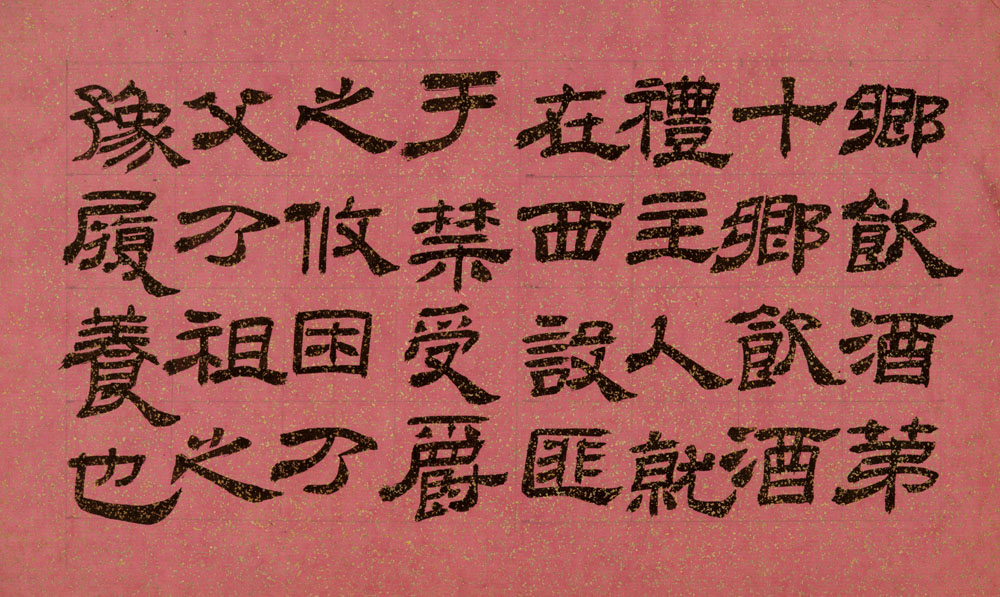 鄉飲酒第
十鄉飲酒
禮主人就
在西設匪
于禁受爵
之攸困乃
父乃祖之
豫履養也